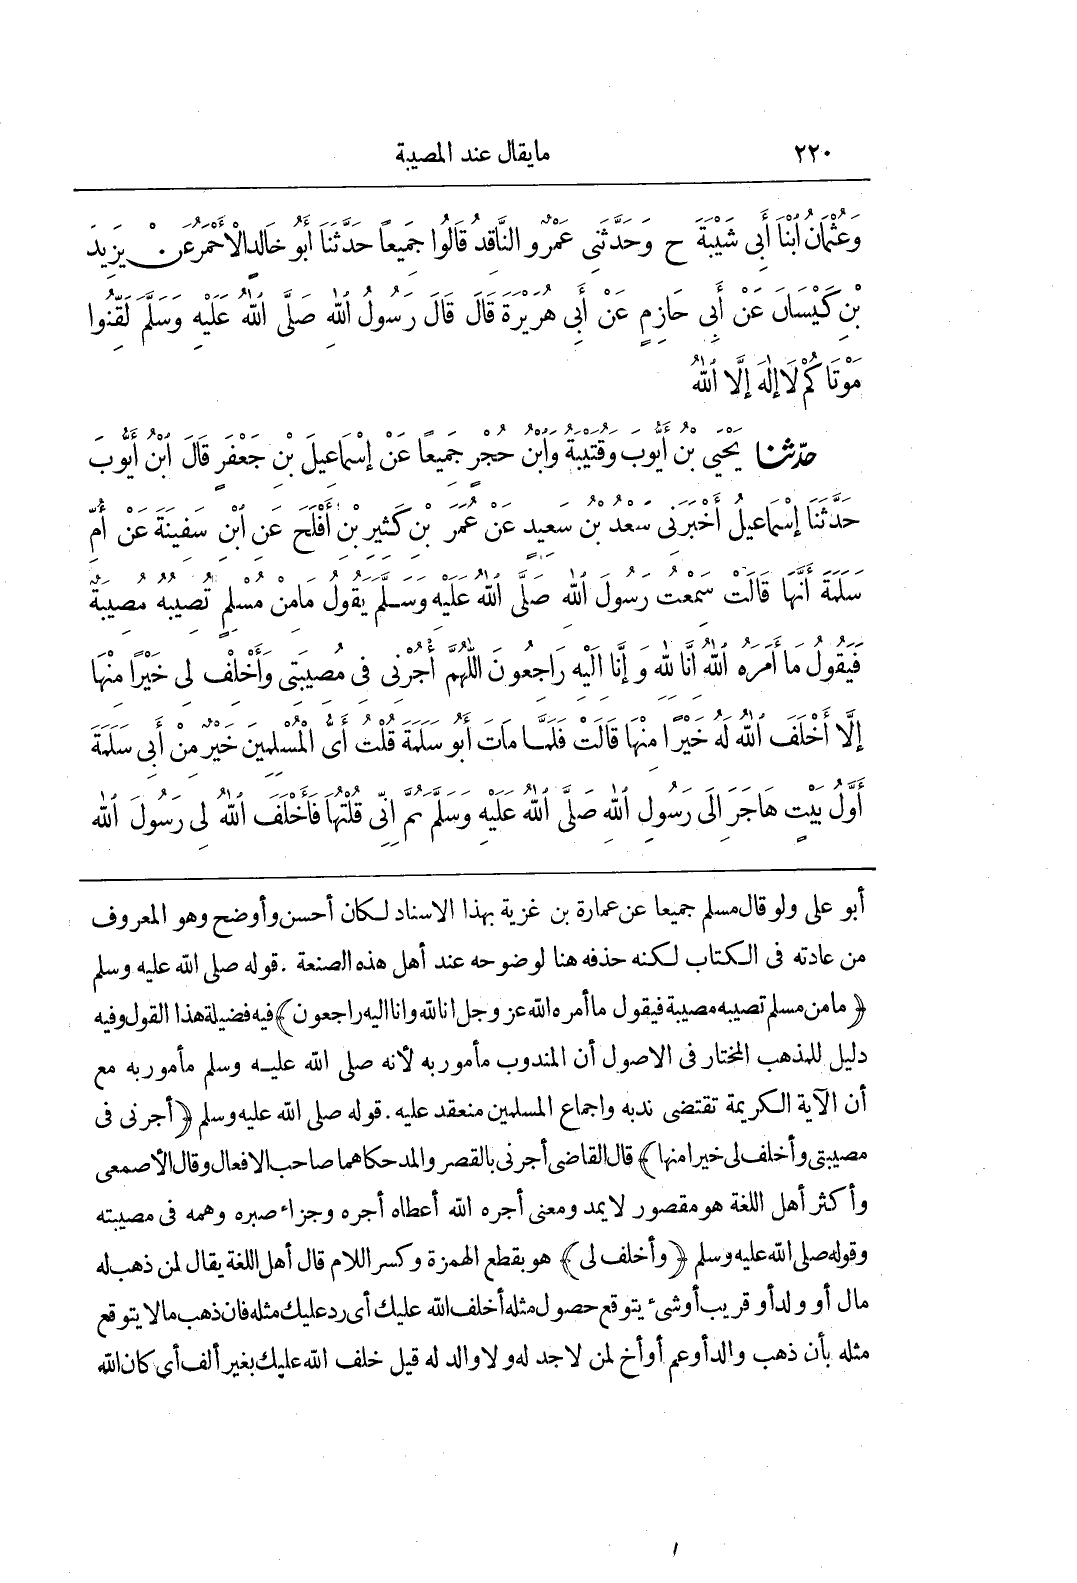 ٢٢٠ مايقال عند المصيبة
وَعُثْمَانُ ابْنَا أَبِى شَيْبَةَ ح وَحَدَّثَنِى عَمْرٌو النَّاقِدُ قَالُوا جَمِيعاً حَدَّثَنَا أَبُو خَالِدٍ الْأَحْمَرُ عَنْ يَزِيدَ
بْنِ كَيْسَانَ عَنْ أَبِى حَازِمٍ عَنْ أَبِى هُرَيْرَةَ قَالَ قَالَ رَسُولُ اللهِ صَلَّى اللهُ عَلَيْهِ وَسَلَّمَ لَقِّنُوا
مَوْتَاكُمْ لَا إِلٰهَ إِلَّا اللهُ
حدّثنا يَحْيَى بْنُ أَيُّوبَ وَقُتَيْبَةُ وَابْنُ حُجْرٍ جَمِيعًا عَنْ إِسْمَاعِيلَ بْنِ جَعْفَرٍ قَالَ ابْنُ أَيُّوبَ
حَدَّثَنَا إِسْمَاعِيلُ أَخْبَرَنِى سَعْدُ بْنُ سَعِيدٍ عَنْ عُمَرَ بْنِ كَثِيرِ بْنِ أَفْلَحَ عَنِ ابْنِ سَفِينَةَ عَنْ أُمِّ
سَلَمَةَ أَنَّهَا قَالَتْ سَمِعْتُ رَسُولَ اللهِ صَلَّى اللهُ عَلَيْهِ وَسَلَّمَ يَقُولُ مَامِنْ مُسْلِمٍ تُصِيبُهُ مُصِيبَةٌ
فَيَقُولُ مَا أَمَرَهُ اللهُ اِنَّا لِلهِ وَ إِنَّا اِلَيْهِ رَاجِعُونَ اللّٰهُمَّ أْجُرْنِى فِى مُصِيبَتِى وَأَخْلِفْ لِى خَيْرًا مِنْهَا
إِلَّا أَخْلَفَ اللهُ لَهُ خَيْرًا مِنْهَا قَالَتْ فَلَمَّا مَاتَ أَبُو سَلَمَةَ قُلْتُ أَىُّ الْمُسْلِمِينَ خَيْرٌ مِنْ أَبِى سَلَمَةَ
أَوَّلُ بَيْتٍ هَاجَرَ اِلَى رَسُولِ اللهِ صَلَّى اللهُ عَلَيْهِ وَسَلَّمَ ثُمَّ اِنِّى قُلْتُهَا فَأَخْلَفَ اللهُ لِى رَسُولَ اللهِ
أبو على ولو قال مسلم جميعا عن عمارة بن غزية بهذا الاسناد لكان أحسن وأوضح وهو المعروف
من عادته فى الكتاب لكنه حذفه هنا لوضوحه عند أهل هذه الصنعة . قوله صلى الله عليه وسلم
﴿مامن مسلم تصيبه مصيبة فيقول ماأمره الله عز وجل انا لله وانا اليه راجعون﴾ فيه فضيلة هذا القول وفيه
دليل للمذهب المختار فى الاصول أن المندوب مأمور به لأنه صلى الله عليه وسلم مأمور به مع
أن الآية الكريمة تقتضى ندبه واجماع المسلمين منعقد عليه . قوله صلى الله عليه وسلم ﴿أجرنى فى
مصيبتى وأخلف لى خيرا منها﴾ قال القاضى أجرنى بالقصر والمد حكاهما صاحب الافعال وقال الأصمعى
وأكثر أهل اللغة هو مقصور لا يمد ومعنى أجره الله أعطاه أجره وجزاء صبره وهمه فى مصيبته
وقوله صلى الله عليه وسلم ﴿وأخلف لى﴾ هو بقطع الهمزة وكسر اللام قال أهل اللغة يقال لمن ذهب له
مال أو ولد أو قريب أو شىء يتوقع حصول مثله أخلف الله عليك أى رد عليك مثله فان ذهب مالا يتوقع
مثله بأن ذهب والد أو عم أو أخ لمن لاجد له ولا والد له قيل خلف الله عليك بغير ألف أى كان الله